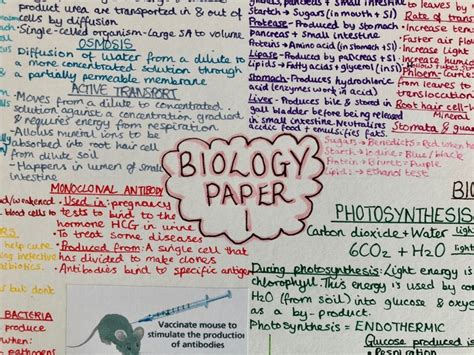 product urea are transported in & out of
cells by diffusion
-Single-celled organism-Large SA to volume
OSMOSIS
Diffusion of water from a dilute to
a more concentrated solution through
a partially permeable membrane
ACTIVE TRANSPORT
-Moves from a dilute to concentrated
solution against a concentration gradient
& requires energy from respiration
-Allows mineral ions to be
absorbed into root hair cell
from dilute soil
-Happens in lumen of small
intestine
MONOCLONAL ANTIBODIES
dead/weakened
blood cells to
Used in: pregnancy
tests to bind to the
hormone HCG in urine
To treat some diseases
Produced from: A single cell that
has divided to make clones
Antibodies bind to specific antigen
help cure
infective
antibiotics
but dont
BACTERIA
produce
when:
pathogens
Vaccinate mouse to
stimulate the production
of antibodies
BIOLOGY
PAPER
1
Starch → Sugars (in mouth + SI)
Protease - Produced by stomach
pancreas + Small intestine
Proteins → Amino acid (in stomach + SI)
Lipase - Produced by pancreas + SI
Lipids → Fatty acids + glycerol (in SI)
Stomach - Produces hydrochloric
acid (enzymes work in acid)
Liver - Produces bile & stored in
gall bladder before being released
in small intestine. Neutralises
acidic food + emulsifies fats.
Sugars → Benedicts → Red when
Starch → Iodine → Blue / black
Protein → Biuret → Purple
Lipid → Ethanol test
to leaves by
Rate of
Increase
Faster air
Increase light
Increase
Phloem-
from leaves to
translocation
Root hair cell-
Mineral
Stomata &
PHOTOSYNTHESIS
Carbon dioxide + Water light
6CO2 + H2O light
During photosynthesis: Light energy is
chlorophyll. This energy is used by
H2O (from soil) into glucose & oxy
as a by-product.
Photosynthesis = ENDOTHERMIC
Glucose produced
Respiration